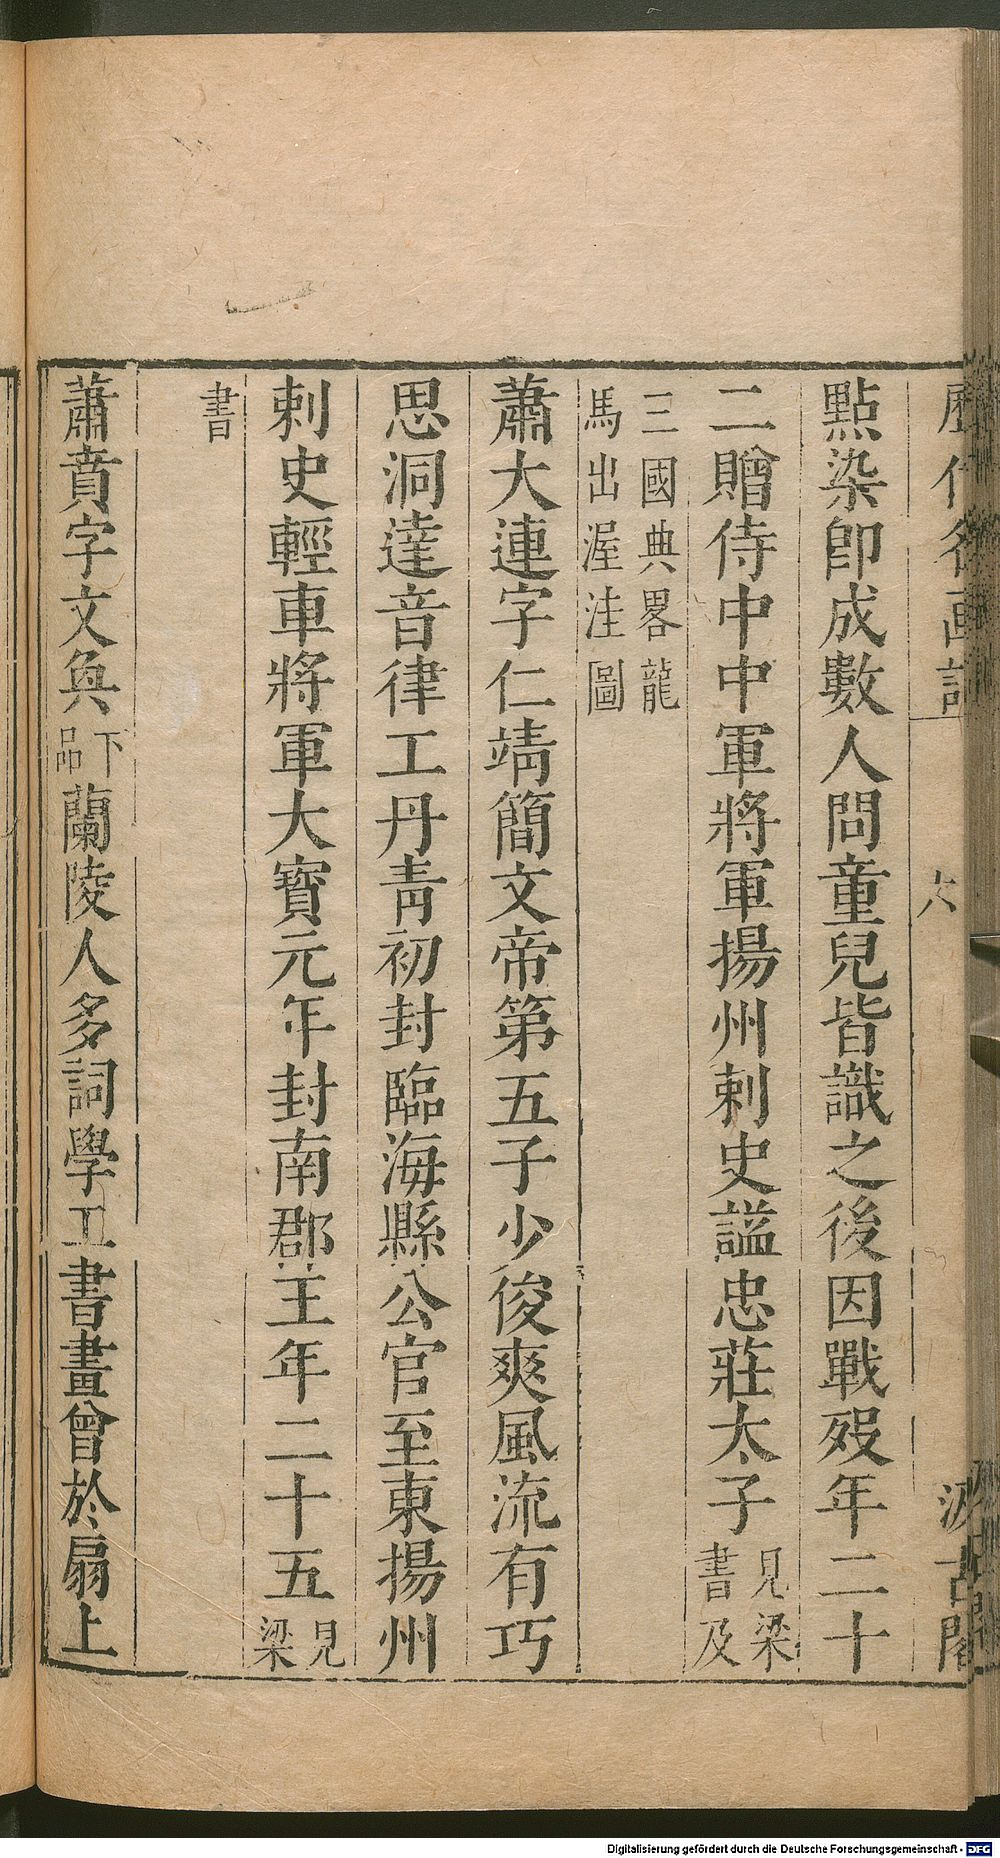 點染卽成數人問童兒皆識之後因戰歿年二十
二贈侍中中軍將軍揚州刺史謚忠莊太子見梁書及
三國典畧龍馬出渥洼圖
蕭大連字仁靖簡文帝第五子少俊爽風流有巧
思洞達音律工丹靑初封臨海縣公官至東揚州
刺史輕車將軍大寳元年封南郡王年二十五見梁
書
蕭賁字文奐下品蘭陵人多詞學工書畫曾於扇上
Digitalisierung gefördert durch die Deutsche Forschungsgemeinschaft - DFG